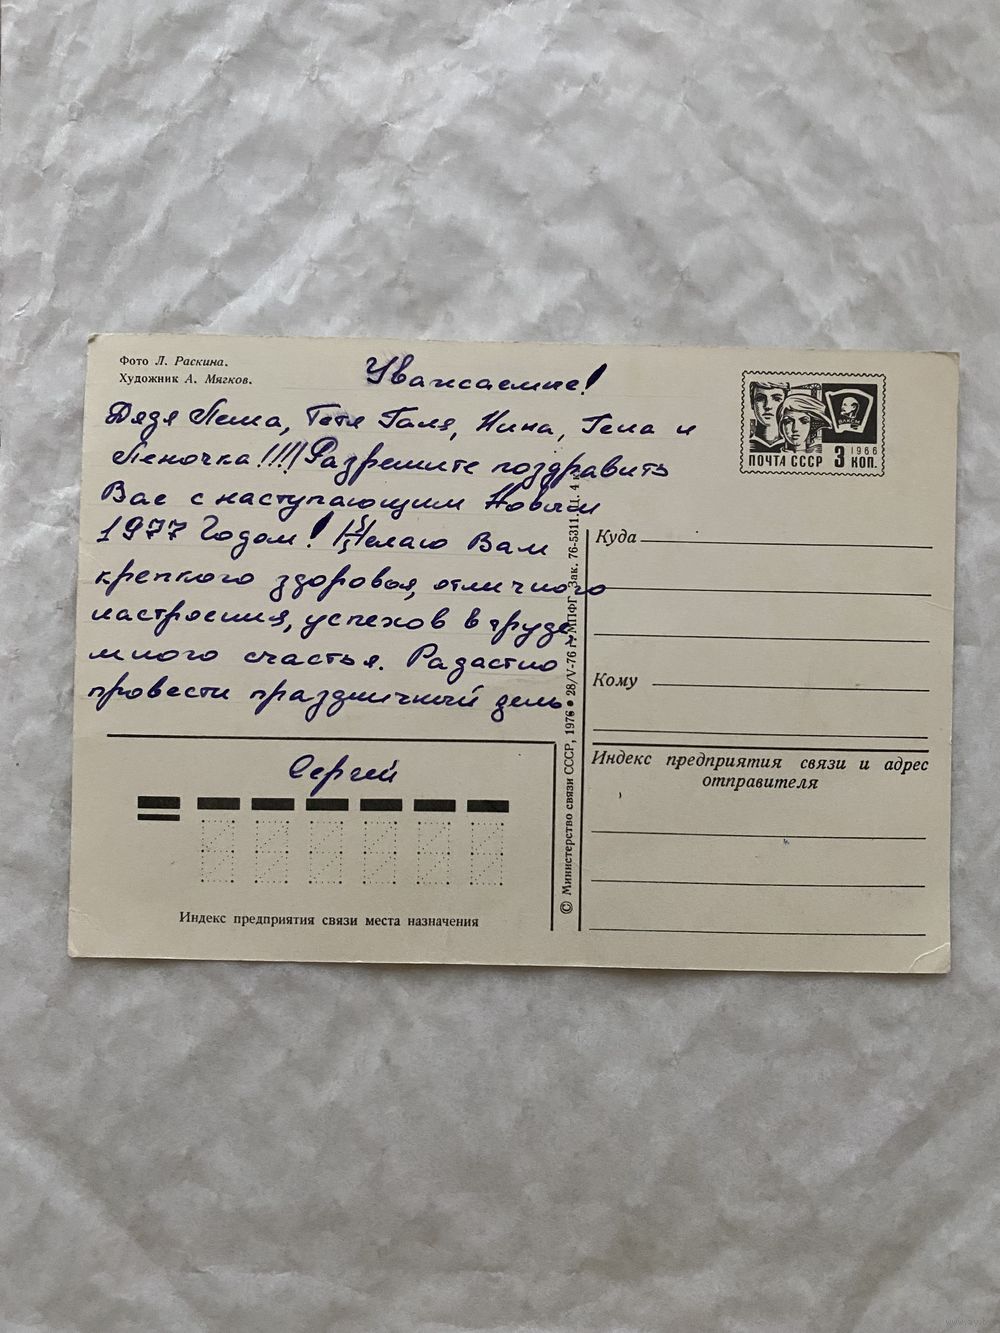 Фото Л. Раскина.
Художник А. Мягков.
Уважаемые!
Дядя Лёма, Тётя Галя, Нина, Гена и
Леночка!!!! Разрешите поздравить
Вас с наступающим Новым
1977 Годом! Желаю Вам
крепкого здоровья, отличного
настроения, успехов в труде,
много счастья. Радастно
провести праздничный день
Сергей
Индекс предприятия связи места назначения
© Министерство связи СССР, 1976 • 28/V-76 г. МПФГ. Зак. 76-5311. Ц. 4 к.
ПОЧТА СССР 3 КОП.
1966
ВЛКСМ
Куда
Кому
Индекс предприятия связи и адрес
отправителя